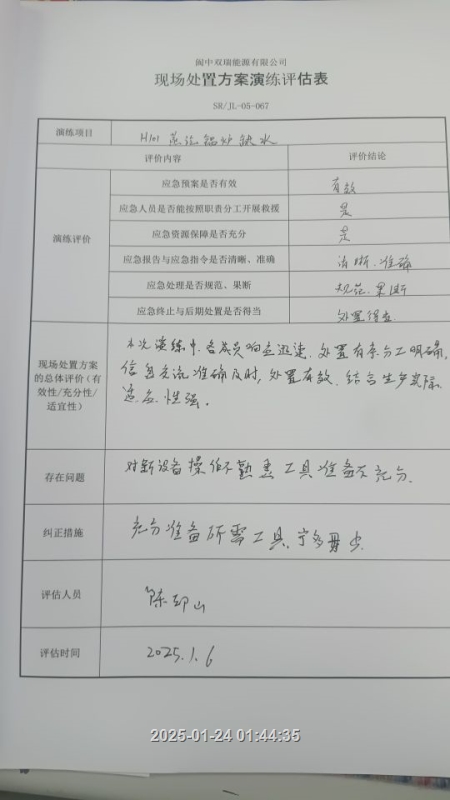 阆中双瑞能源有限公司
现场处置方案演练评估表
SR/JL-05-067
演练项目 H101 蒸汽锅炉缺水
评价内容 评价结论
演练评价
应急预案是否有效 有效
应急人员是否能按照职责分工开展救援 是
应急资源保障是否充分 是
应急报告与应急指令是否清晰、准确 清晰、准确
应急处理是否规范、果断 规范、果断
应急终止与后期处置是否得当 处置得当
现场处置方案的总体评价(有效性/充分性/适宜性)
本次演练中各成员响应迅速、处置有条分工明确,
信息交流准确及时,处置有效、结合生产实际
适应性强。
存在问题 对新设备操作不熟悉 工具准备不充分.
纠正措施 充分准备所需工具,宁多毋少.
评估人员 陈 山
评估时间 2025.1.6
2025-01-24 01:44:35